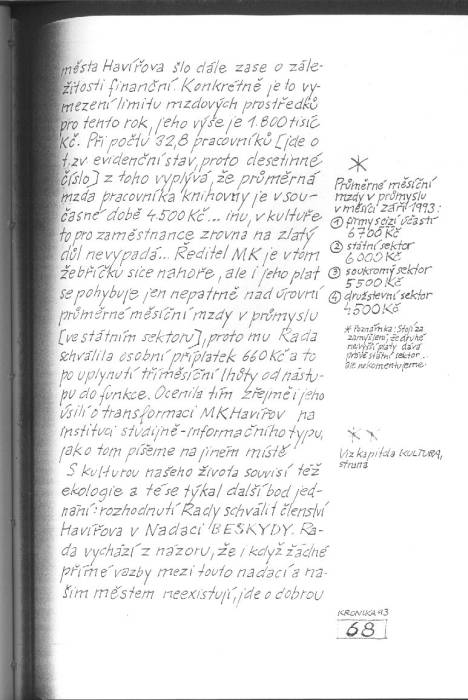 města Havířova šlo dále zase o zále-
žitosti finanční. Konkrétně je to vy-
mezení limitu mzdových prostředků
pro tento rok, jeho výše je 1.800 tisíc
Kč. Při počtu 32,8 pracovníků [jde o
t.zv evidenční stav, proto desetinné
číslo] z toho vyplývá, že průměrná
mzda pracovníka knihovny je v sou-
časné době 4.500 Kč... inu, v kultuře
to pro zaměstnance zrovna na zlatý
důl nevypadá... Ředitel MK je v tom
žebříčku sice nahoře, ale i jeho plat
se pohybuje jen nepatrně nad úrovní
průměrné měsíční mzdy v průmyslu
[ve státním sektoru], proto mu Rada
schválila osobní příplatek 660 Kč a to
po uplynutí tříměsíční lhůty od nástu-
pu do funkce. Ocenila tím zřejmě i jeho
úsilí o transformaci MK Havířov na
instituci studijně-informačního typu,
jak o tom píšeme na jiném místě
S kulturou našeho života souvisí též
ekologie a té se týkal další bod jed-
nání: rozhodnutí Rady schválit členství
Havířova v Nadaci BESKYDY. Ra-
da vychází z názoru, že i když žádné
přímé vazby mezi touto nadací a na-
ším městem neexistují, jde o dobrou
*
Průměrné měsíční
mzdy v průmyslu
v měsíci září 1993:
① firmy s cizí účastí
6700 Kč
② státní sektor
6000 Kč
③ soukromý sektor
5500 Kč
④ družstevní sektor
4500 Kč
* Poznámka: Stojí za
zamyšlení, že druhé
největší platy dává
právě státní sektor...
ale nekomentujeme
**
Viz kapitola KULTURA,
strana
KRONIKA 93
68